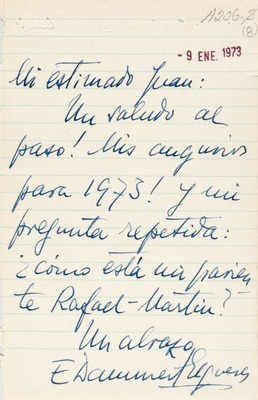 A206-2
(8)
- 9 ENE. 1973
Mi estimado Juan:
Un saludo al
paso! Mis augurios
para 1973! y mi
pregunta repetida:
¿cómo está mi parien
te Rafael-Martin?
Un abrazo
E Dammert